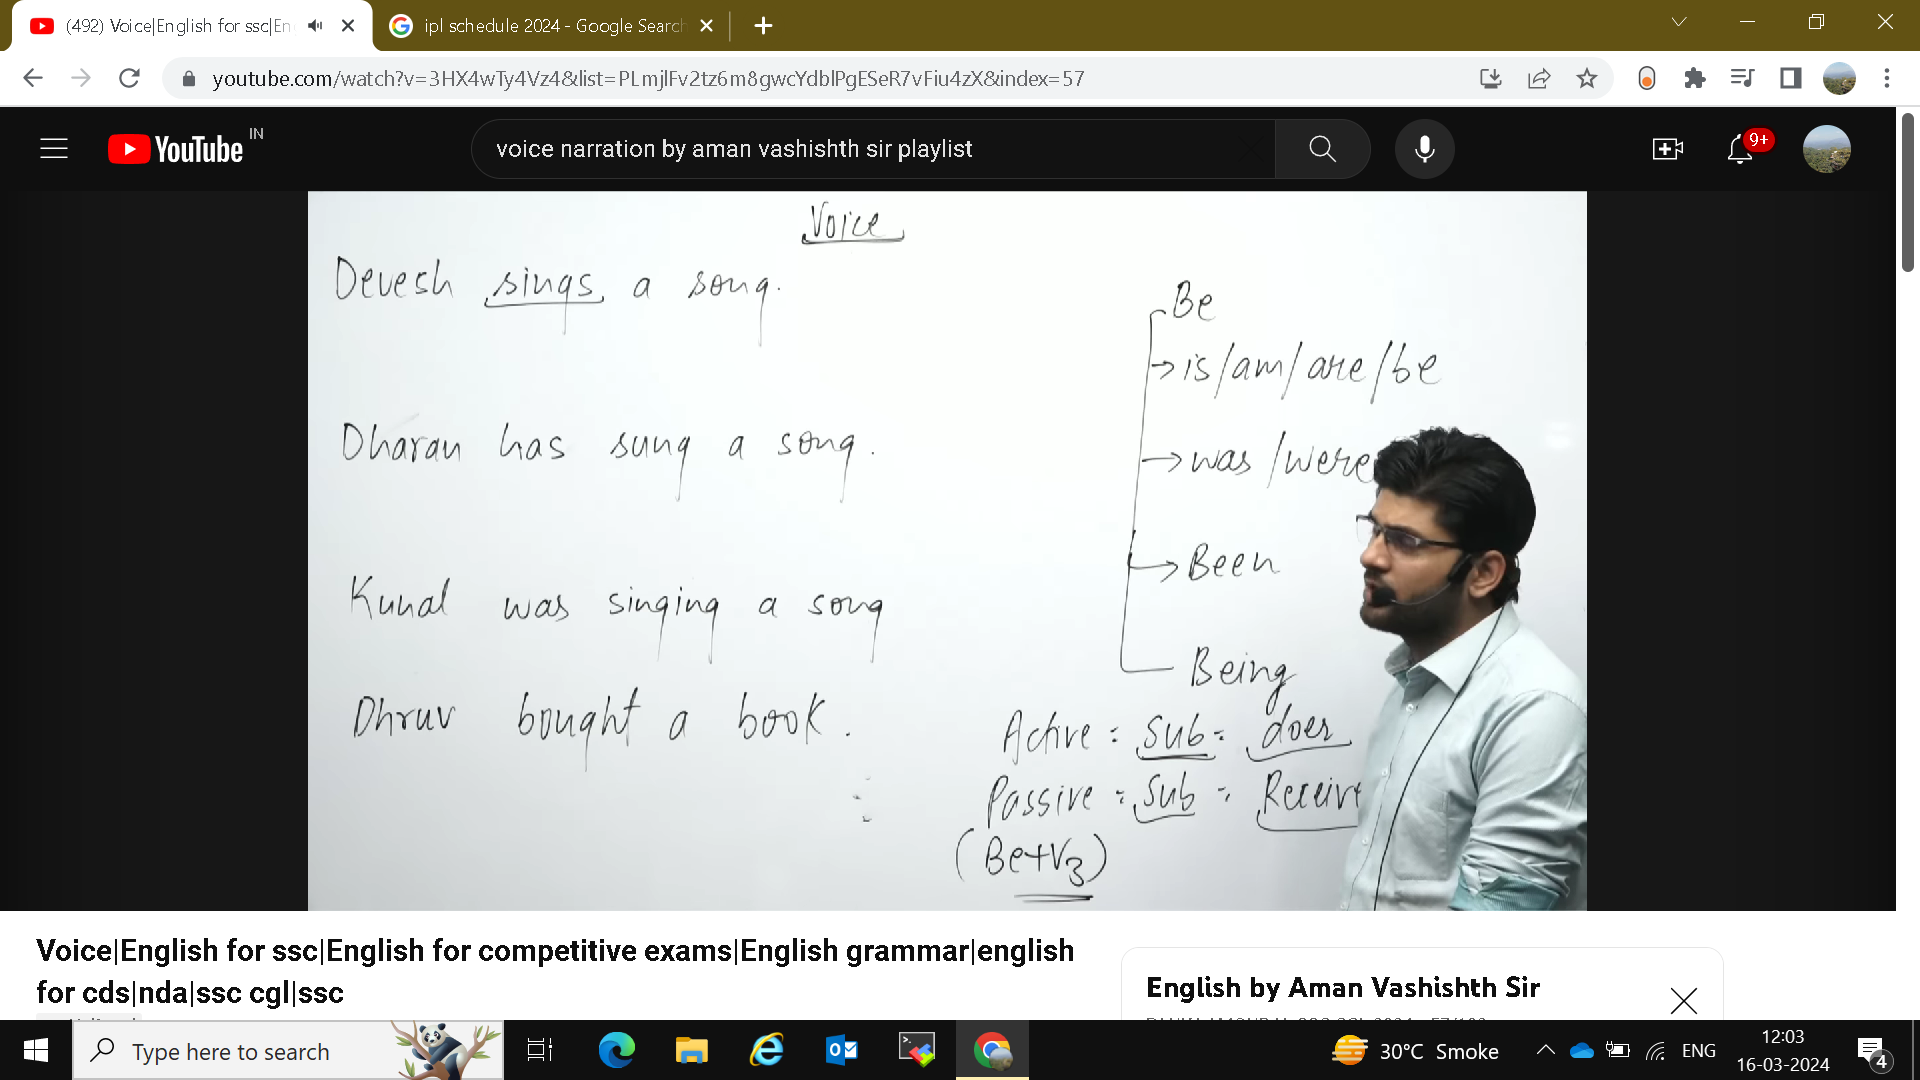 (492) Voice|English for ssc|En
ipl schedule 2024 - Google Search
youtube.com/watch?v=3HX4wTy4Vz4&list=PLmjlFv2tz6m8gwcYdblPgESeR7vFiu4zX&index=57
YouTube IN
voice narration by aman vashishth sir playlist
9+
Voice
Devesh sings a song.
Be
is/am/are/be
Dharan has sung a song.
was/were
Been
Kunal was singing a song
Being
Dhruv bought a book.
Active = Sub = does
Passive = Sub = Receive
(Be+V3)
Voice|English for ssc|English for competitive exams|English grammar|english
for cds|nda|ssc cgl|ssc
English by Aman Vashishth Sir
Type here to search
30°C Smoke
ENG
12:03
16-03-2024
4